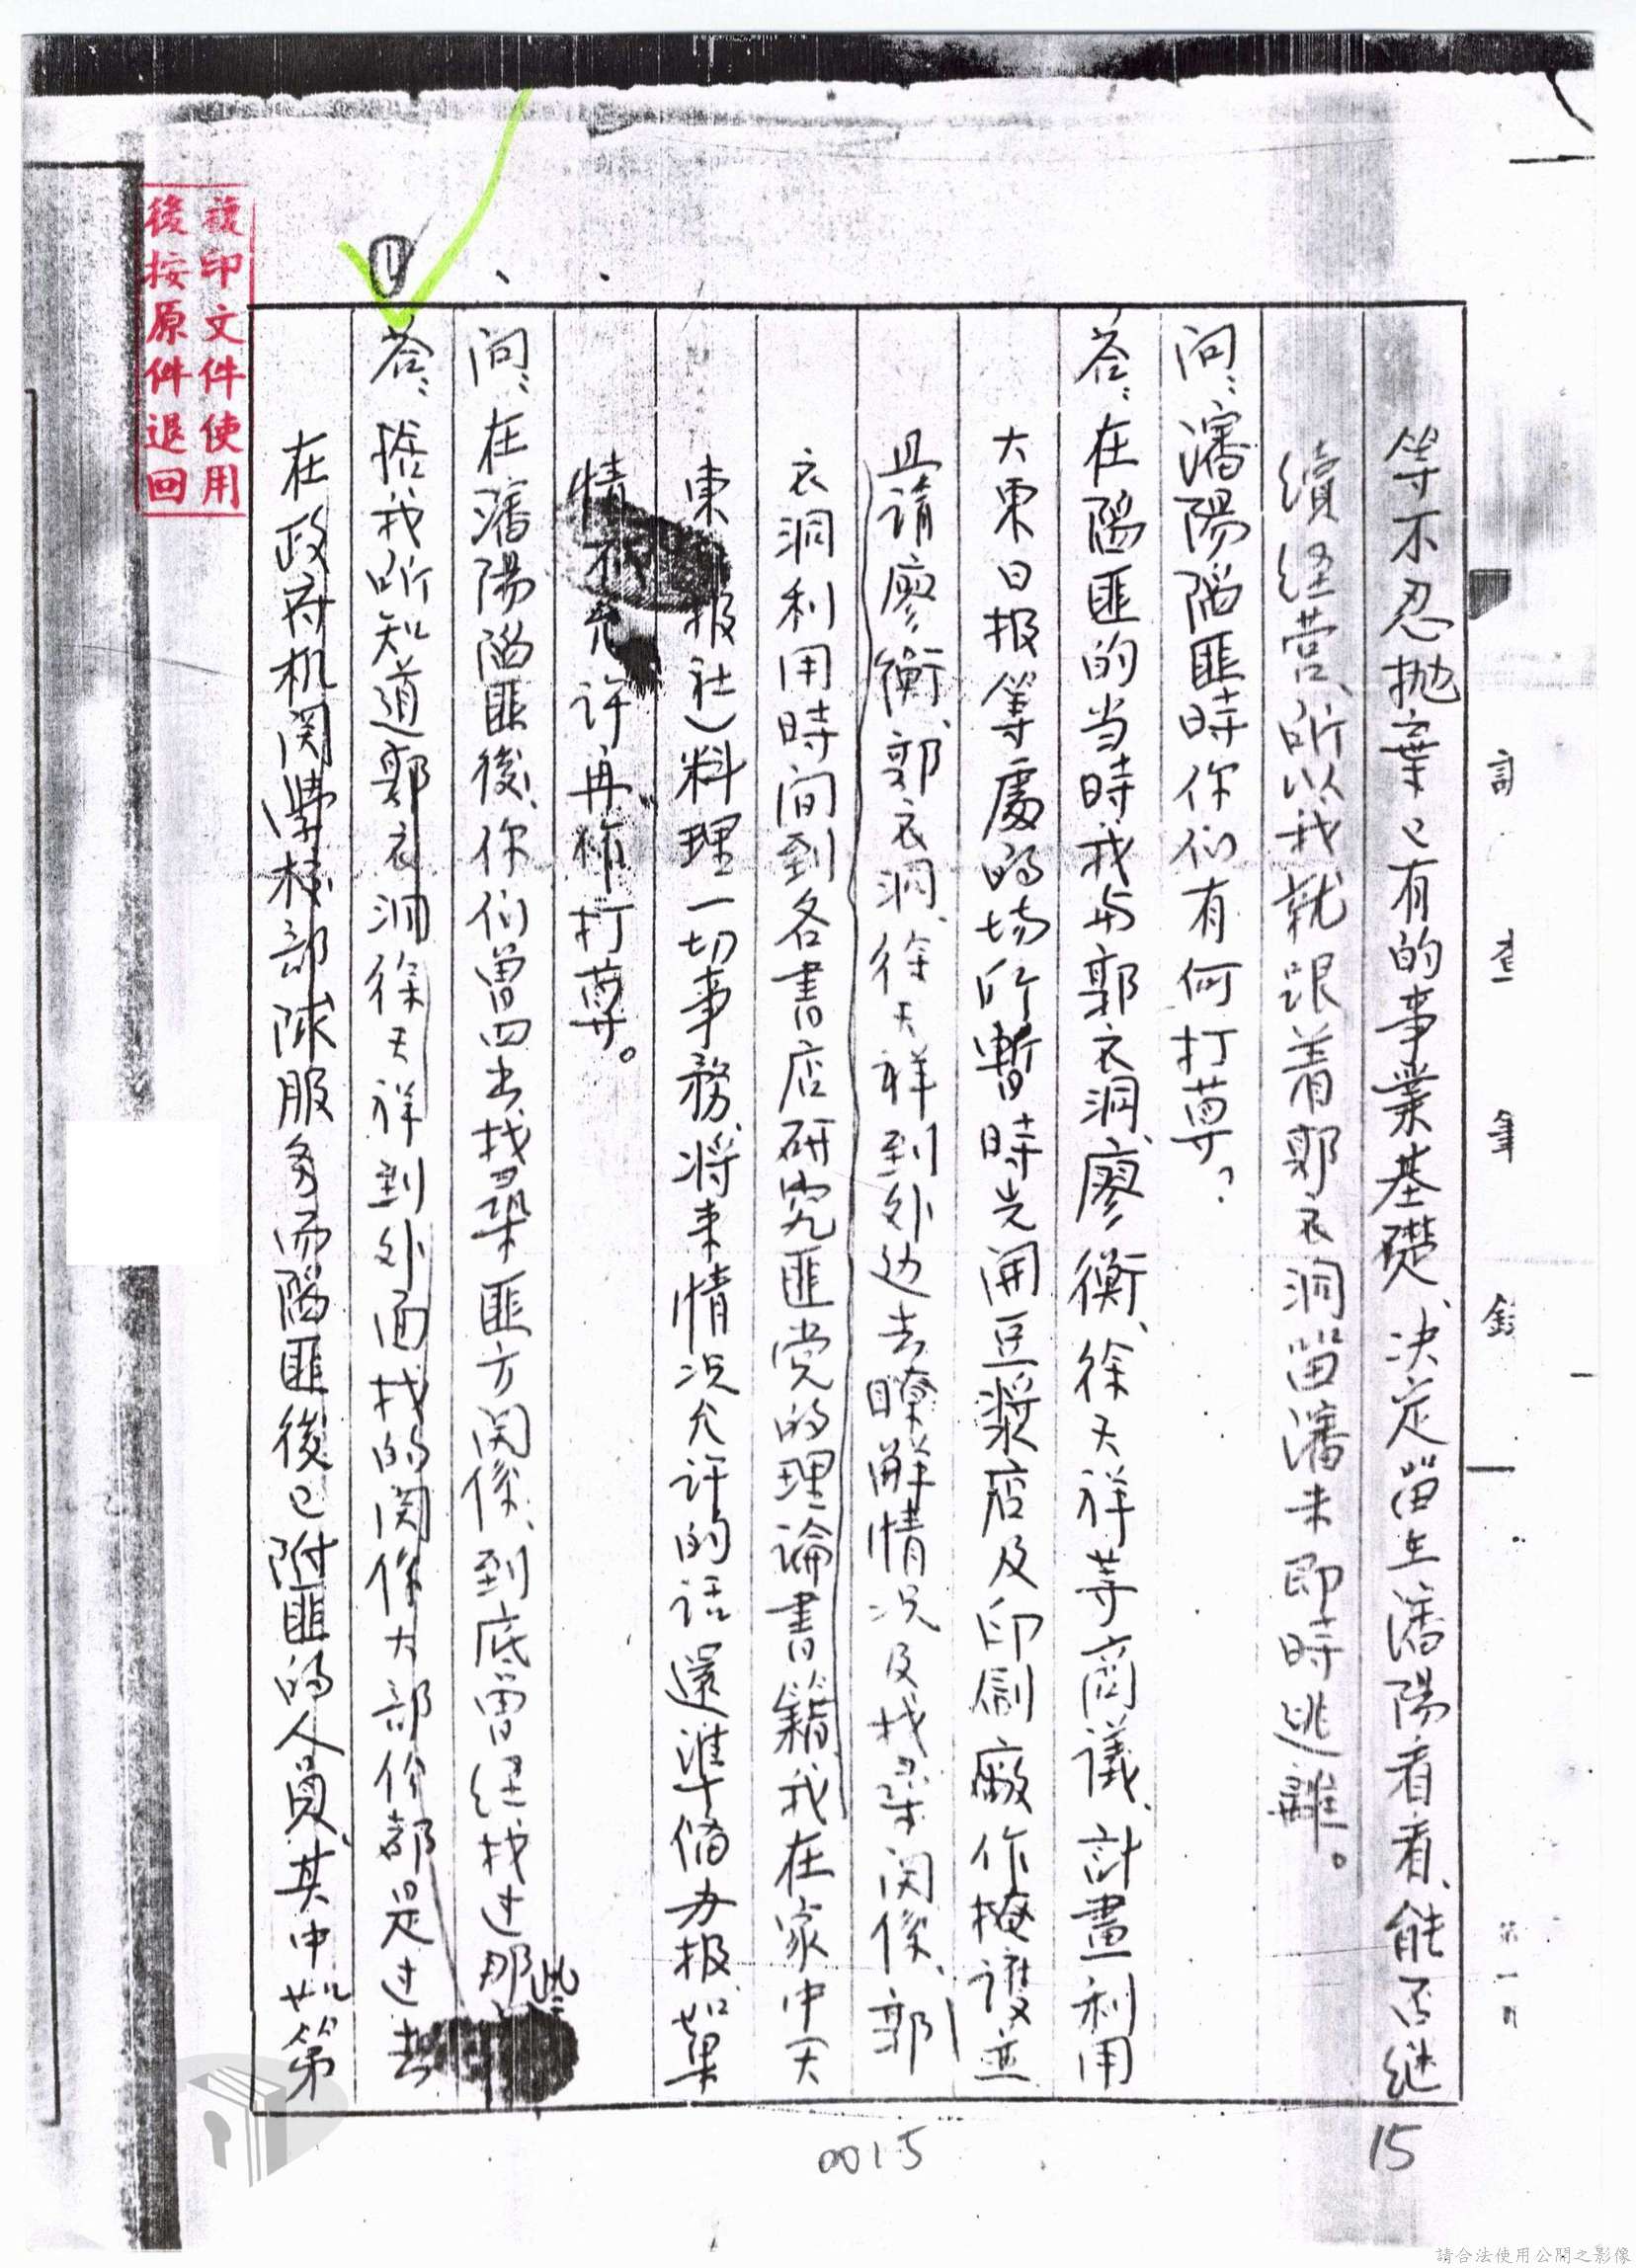 調查筆錄
第一頁
等不忍抛棄已有的事業基礎、決定留在瀋陽看看、能否继
續经营、所以我就跟着郭衣洞留瀋未即時逃離。
问:瀋陽陷匪時你们有何打算?
答:在陷匪的当時我与郭衣洞、廖衡、徐天祥等商議、計畫利用
大東日报等處的场所暫時先開豆漿店及印刷廠作掩護並
且請廖衡、郭衣洞、徐天祥到处边去瞭解情况及找渠関係、郭
衣洞利用時间到各書店研究匪党的理論書籍、我在家中(大
東报社)料理一切事務、将来情况允许的话還準備办报、如果
情 不允许再作打算。
问:在瀋陽陷匪後、你们曾四出找尋匪方関係、到底曾经找过那些
①
答:据我所知道郭衣洞徐天祥到外面找的関係大部份都是过去
在政府机関學校部隊服务而陷匪後已附匪的人員、其中如第
複印文件使用
後按原件退回
0015
15
請合法使用公開之影像